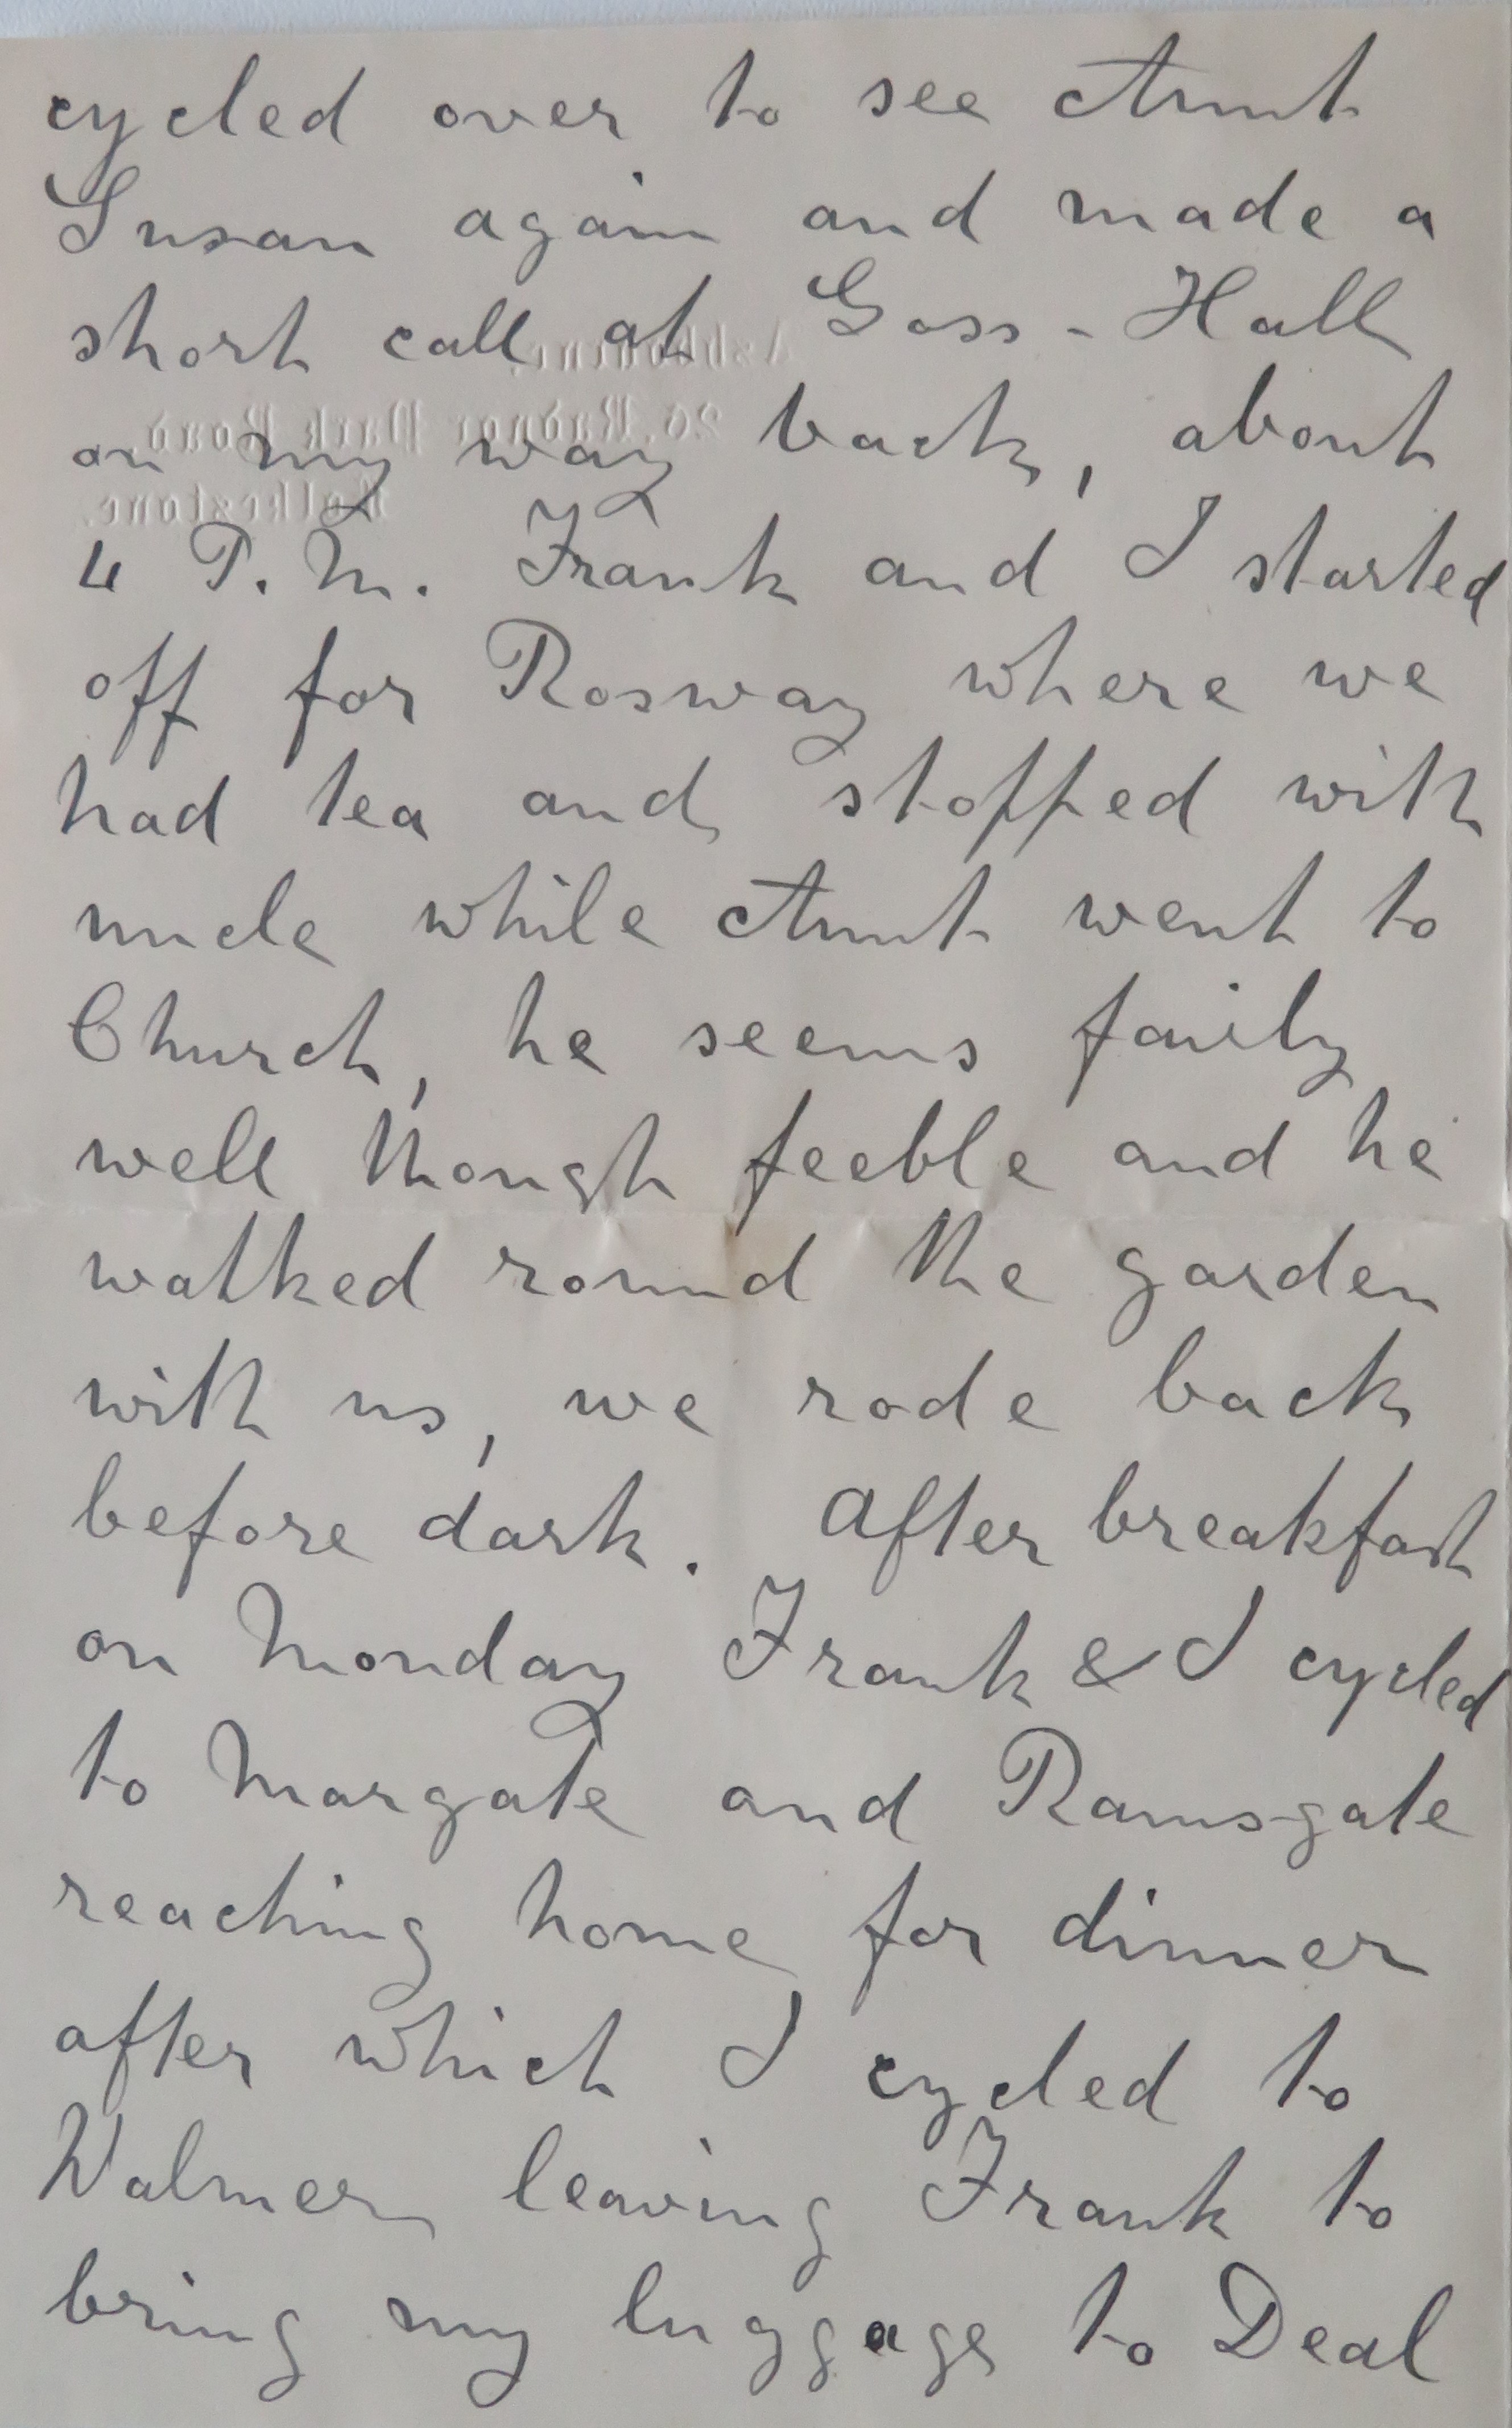 cycled over to see Aunt
Susan again and made a
short call at Goss-Hall
on my way back, about
4 P.M. Frank and I started
off for Rosway where we
had tea and stopped with
uncle while Aunt went to
Church, he seems fairly
well though feeble and he
walked round the garden
with us, we rode back
before dark. After breakfast
on Monday Frank & I cycled
to Margate and Ramsgate
reaching home for dinner
after which I cycled to
Walmer leaving Frank to
bring my luggage to Deal
26, Radnor Park Road
Folkestone.